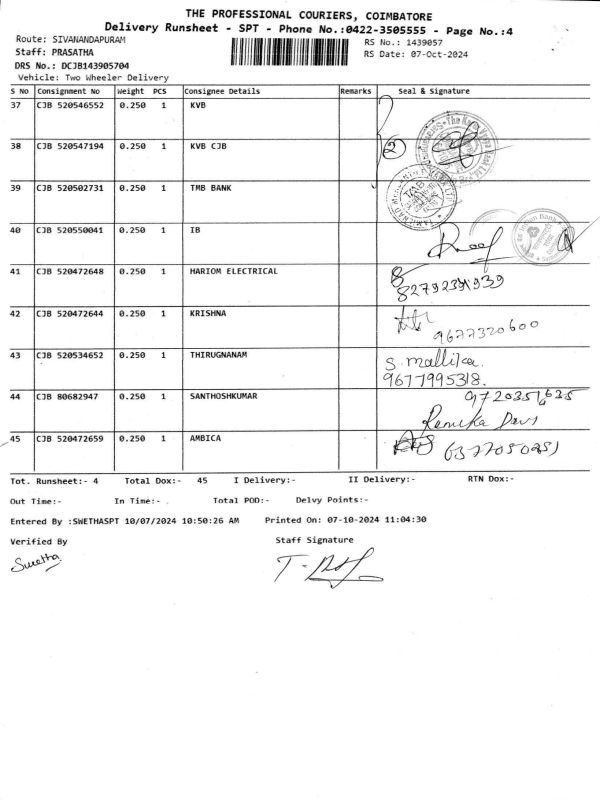 THE PROFESSIONAL COURIERS, COIMBATORE
Delivery Runsheet - SPT - Phone No.:0422-3505555 - Page No.:4
Route: SIVANANDAPURAM RS No.: 1439057
Staff: PRASATHA RS Date: 07-Oct-2024
DRS No.: DCJB143905704
Vehicle: Two Wheeler Delivery
S No Consignment No Weight PCS Consignee Details Remarks Seal & Signature
37 CJB 520546552 0.250 1 KVB
38 CJB 520547194 0.250 1 KVB CJB 2
39 CJB 520502731 0.250 1 TMB BANK
40 CJB 520550041 0.250 1 IB
41 CJB 520472648 0.250 1 HARIOM ELECTRICAL
42 CJB 520472644 0.250 1 KRISHNA 9677320600
43 CJB 520534652 0.250 1 THIRUGNANAM S. mallika.
9677995318.
44 CJB 80682947 0.250 1 SANTHOSHKUMAR
Renuka Devi
45 CJB 520472659 0.250 1 AMBICA
Tot. Runsheet:- 4 Total Dox:- 45 I Delivery:- II Delivery:- RTN Dox:-
Out Time:- In Time:- . Total POD:- Delvy Points:-
Entered By :SWETHASPT 10/07/2024 10:50:26 AM Printed On: 07-10-2024 11:04:30
Verified By Staff Signature
Swetha